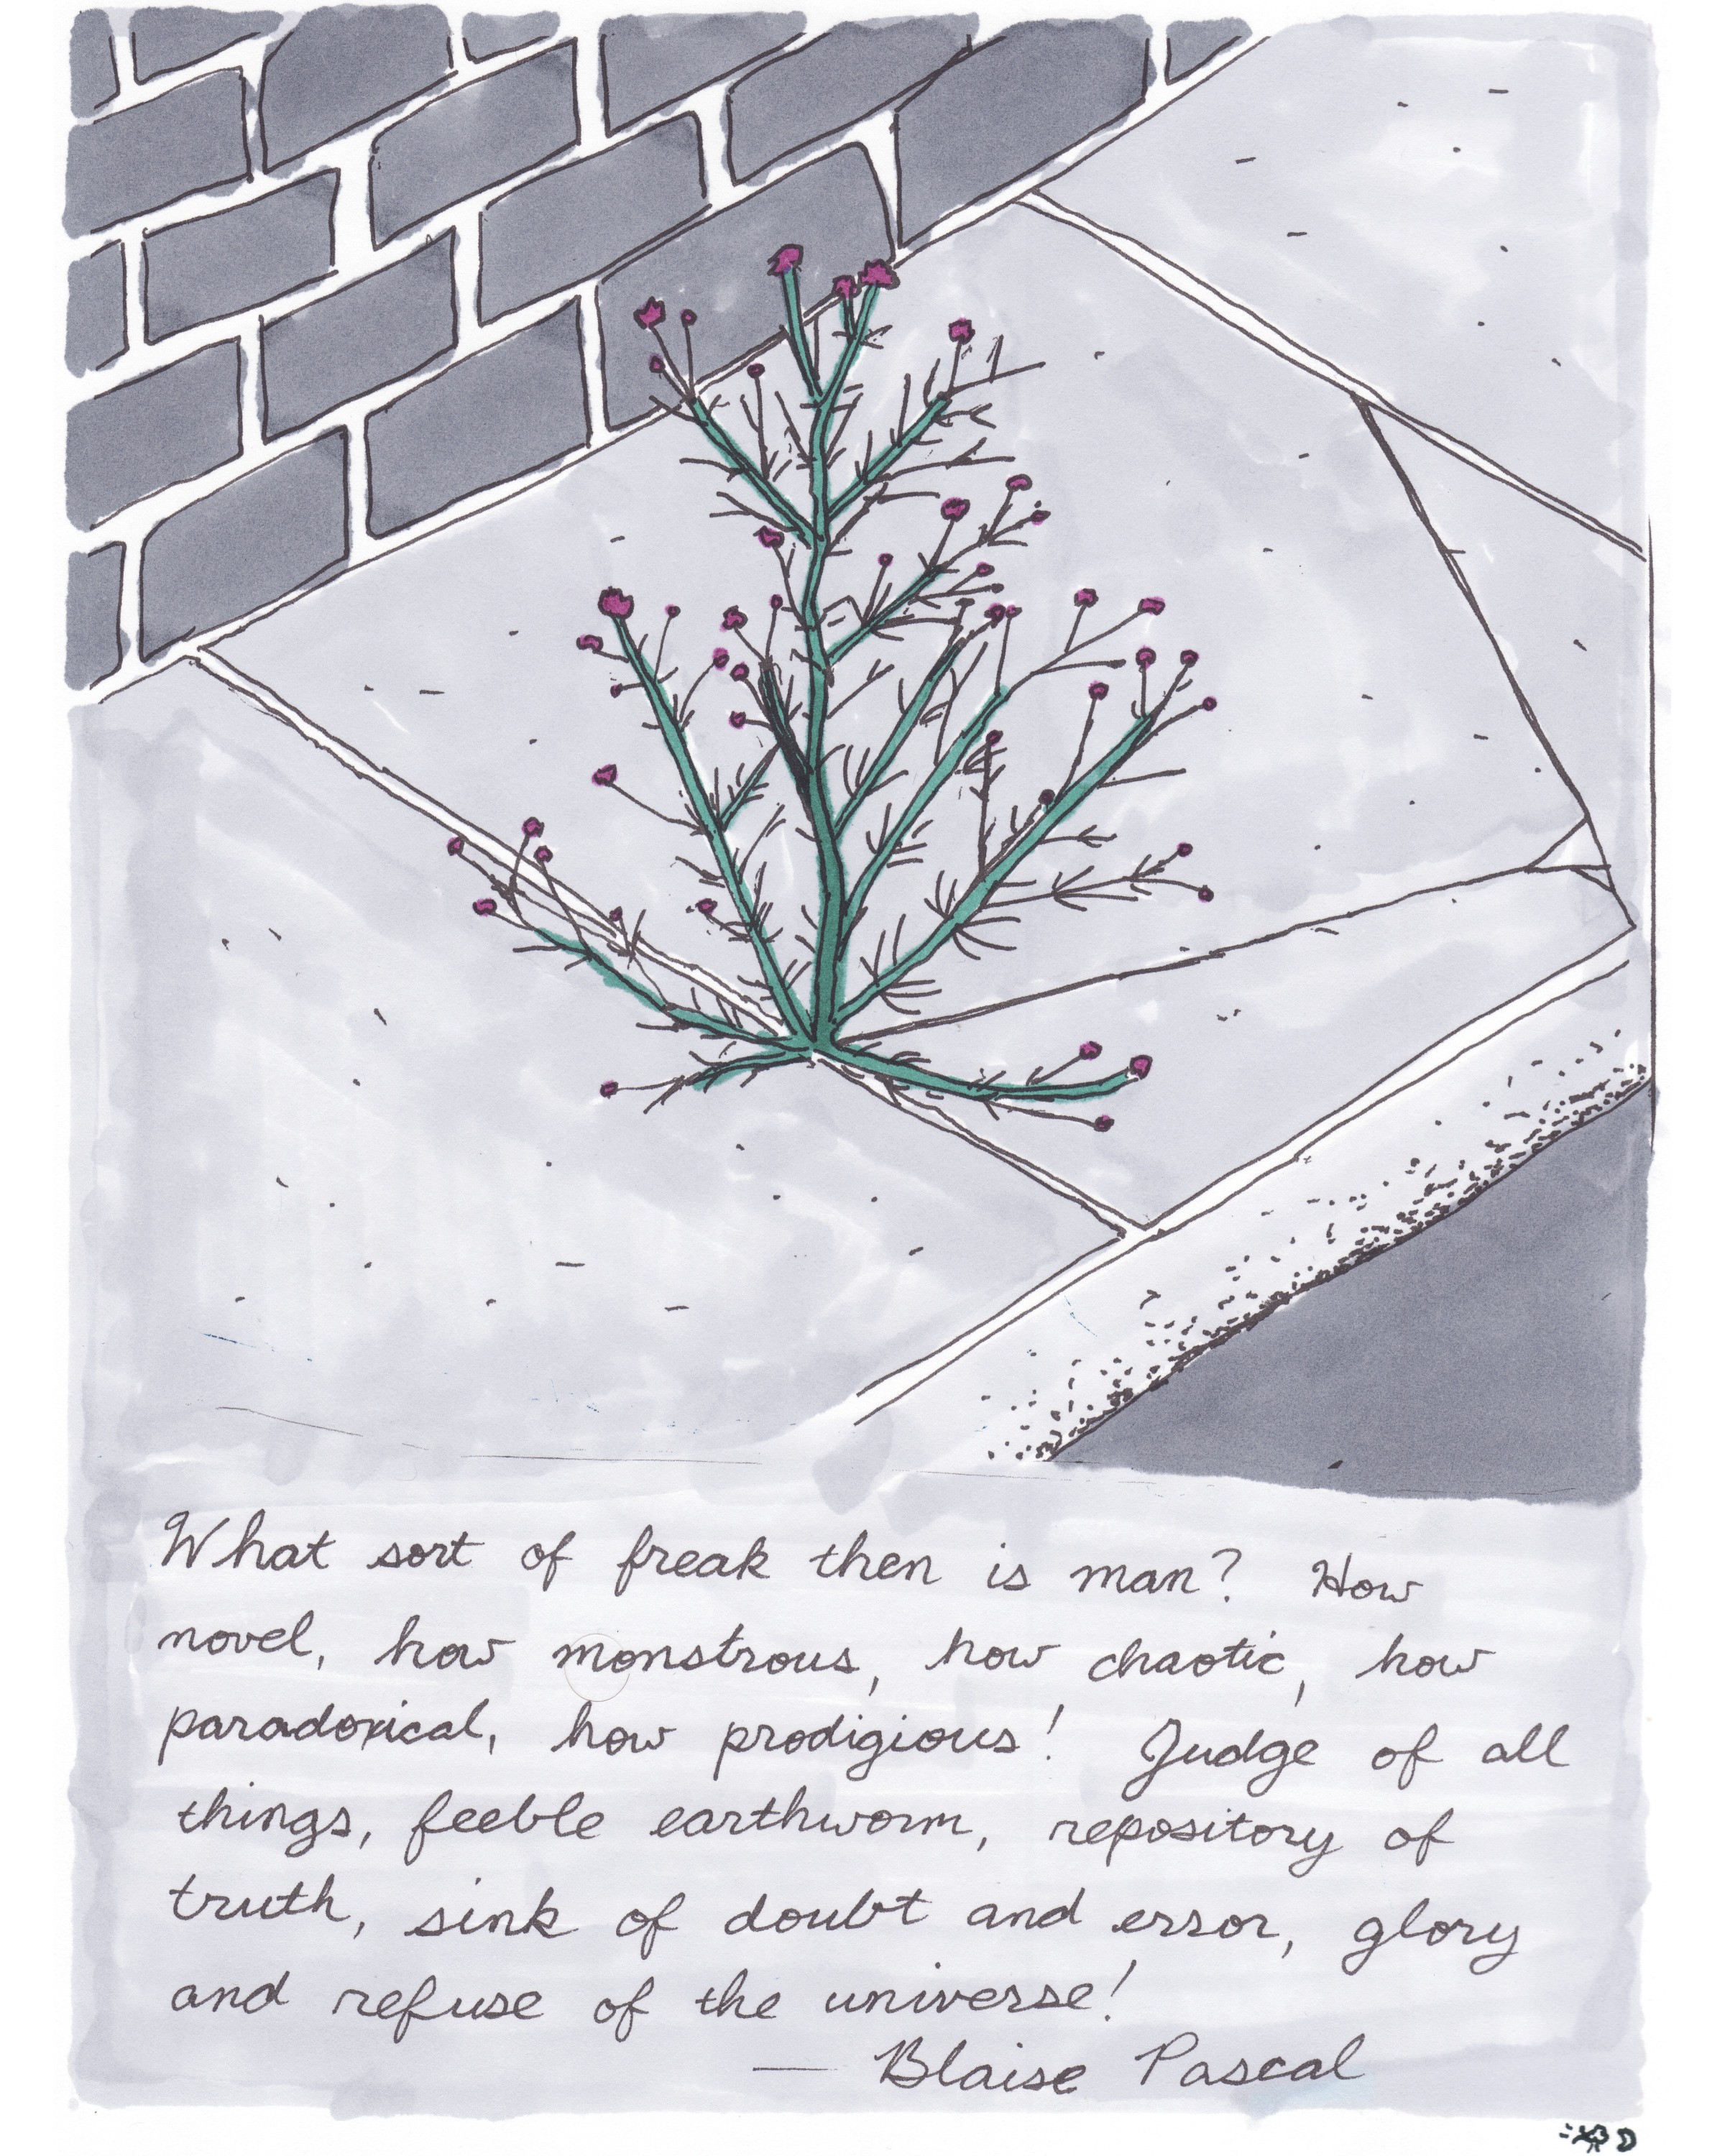 What sort of freak then is man? How
novel, how monstrous, how chaotic, how
paradoxical, how prodigious! Judge of all
things, feeble earthworm, repository of
truth, sink of doubt and error, glory
and refuse of the universe!
— Blaise Pascal